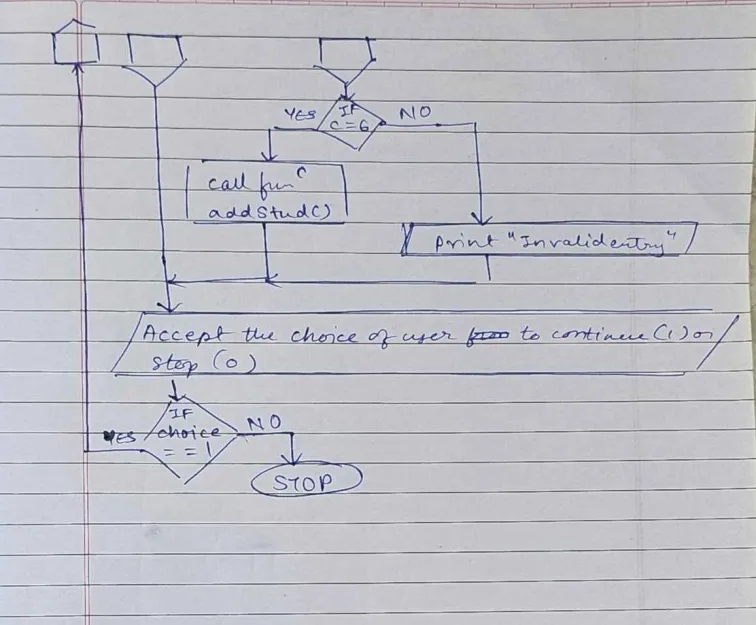 IF
YES
C=6
NO
call funᶜ
addStud()
print "Invalid entry"
Accept the choice of user to continue (1) or
Stop (0)
IF
YES
choice
NO
== 1
STOP